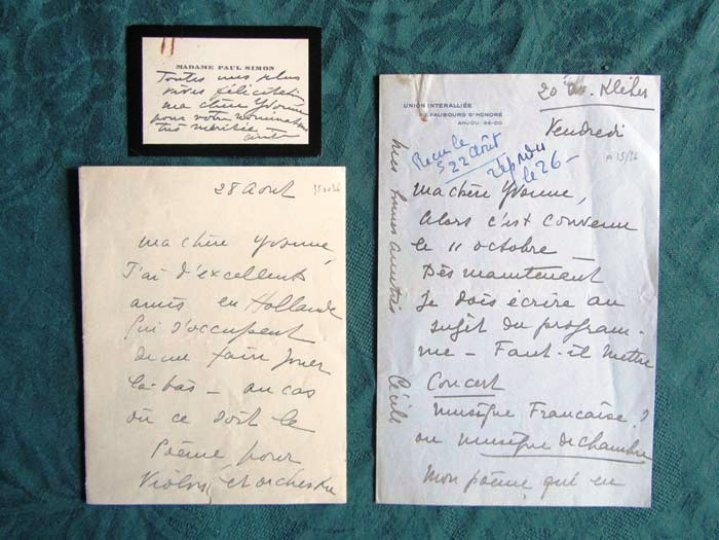 MADAME PAUL SIMON
Toutes mes plus
vives félicitations
ma chère Yvonne
pour votre nomination
très méritée
28 Aout
ma chère Yvonne,
J'ai d'excellents
amis en Hollande
qui s'occupent
de me faire jouer
là-bas - au cas
où ce soit le
Poème pour
Violon, et orchestre
20 Av. Kléber
UNION INTERALLIÉE
FAUBOURG ST HONORÉ
ANJOU
Vendredi
Reçu le
22 août
répondu
le 26-
ma chère Yvonne,
Alors c'est convenu
le 11 octobre -
Dès maintenant
je dois écrire au
sujet du program-
me - Faut-il mettre
Concert
musique Française ?
ou musique de chambre
Mon poème qui en
Cécile